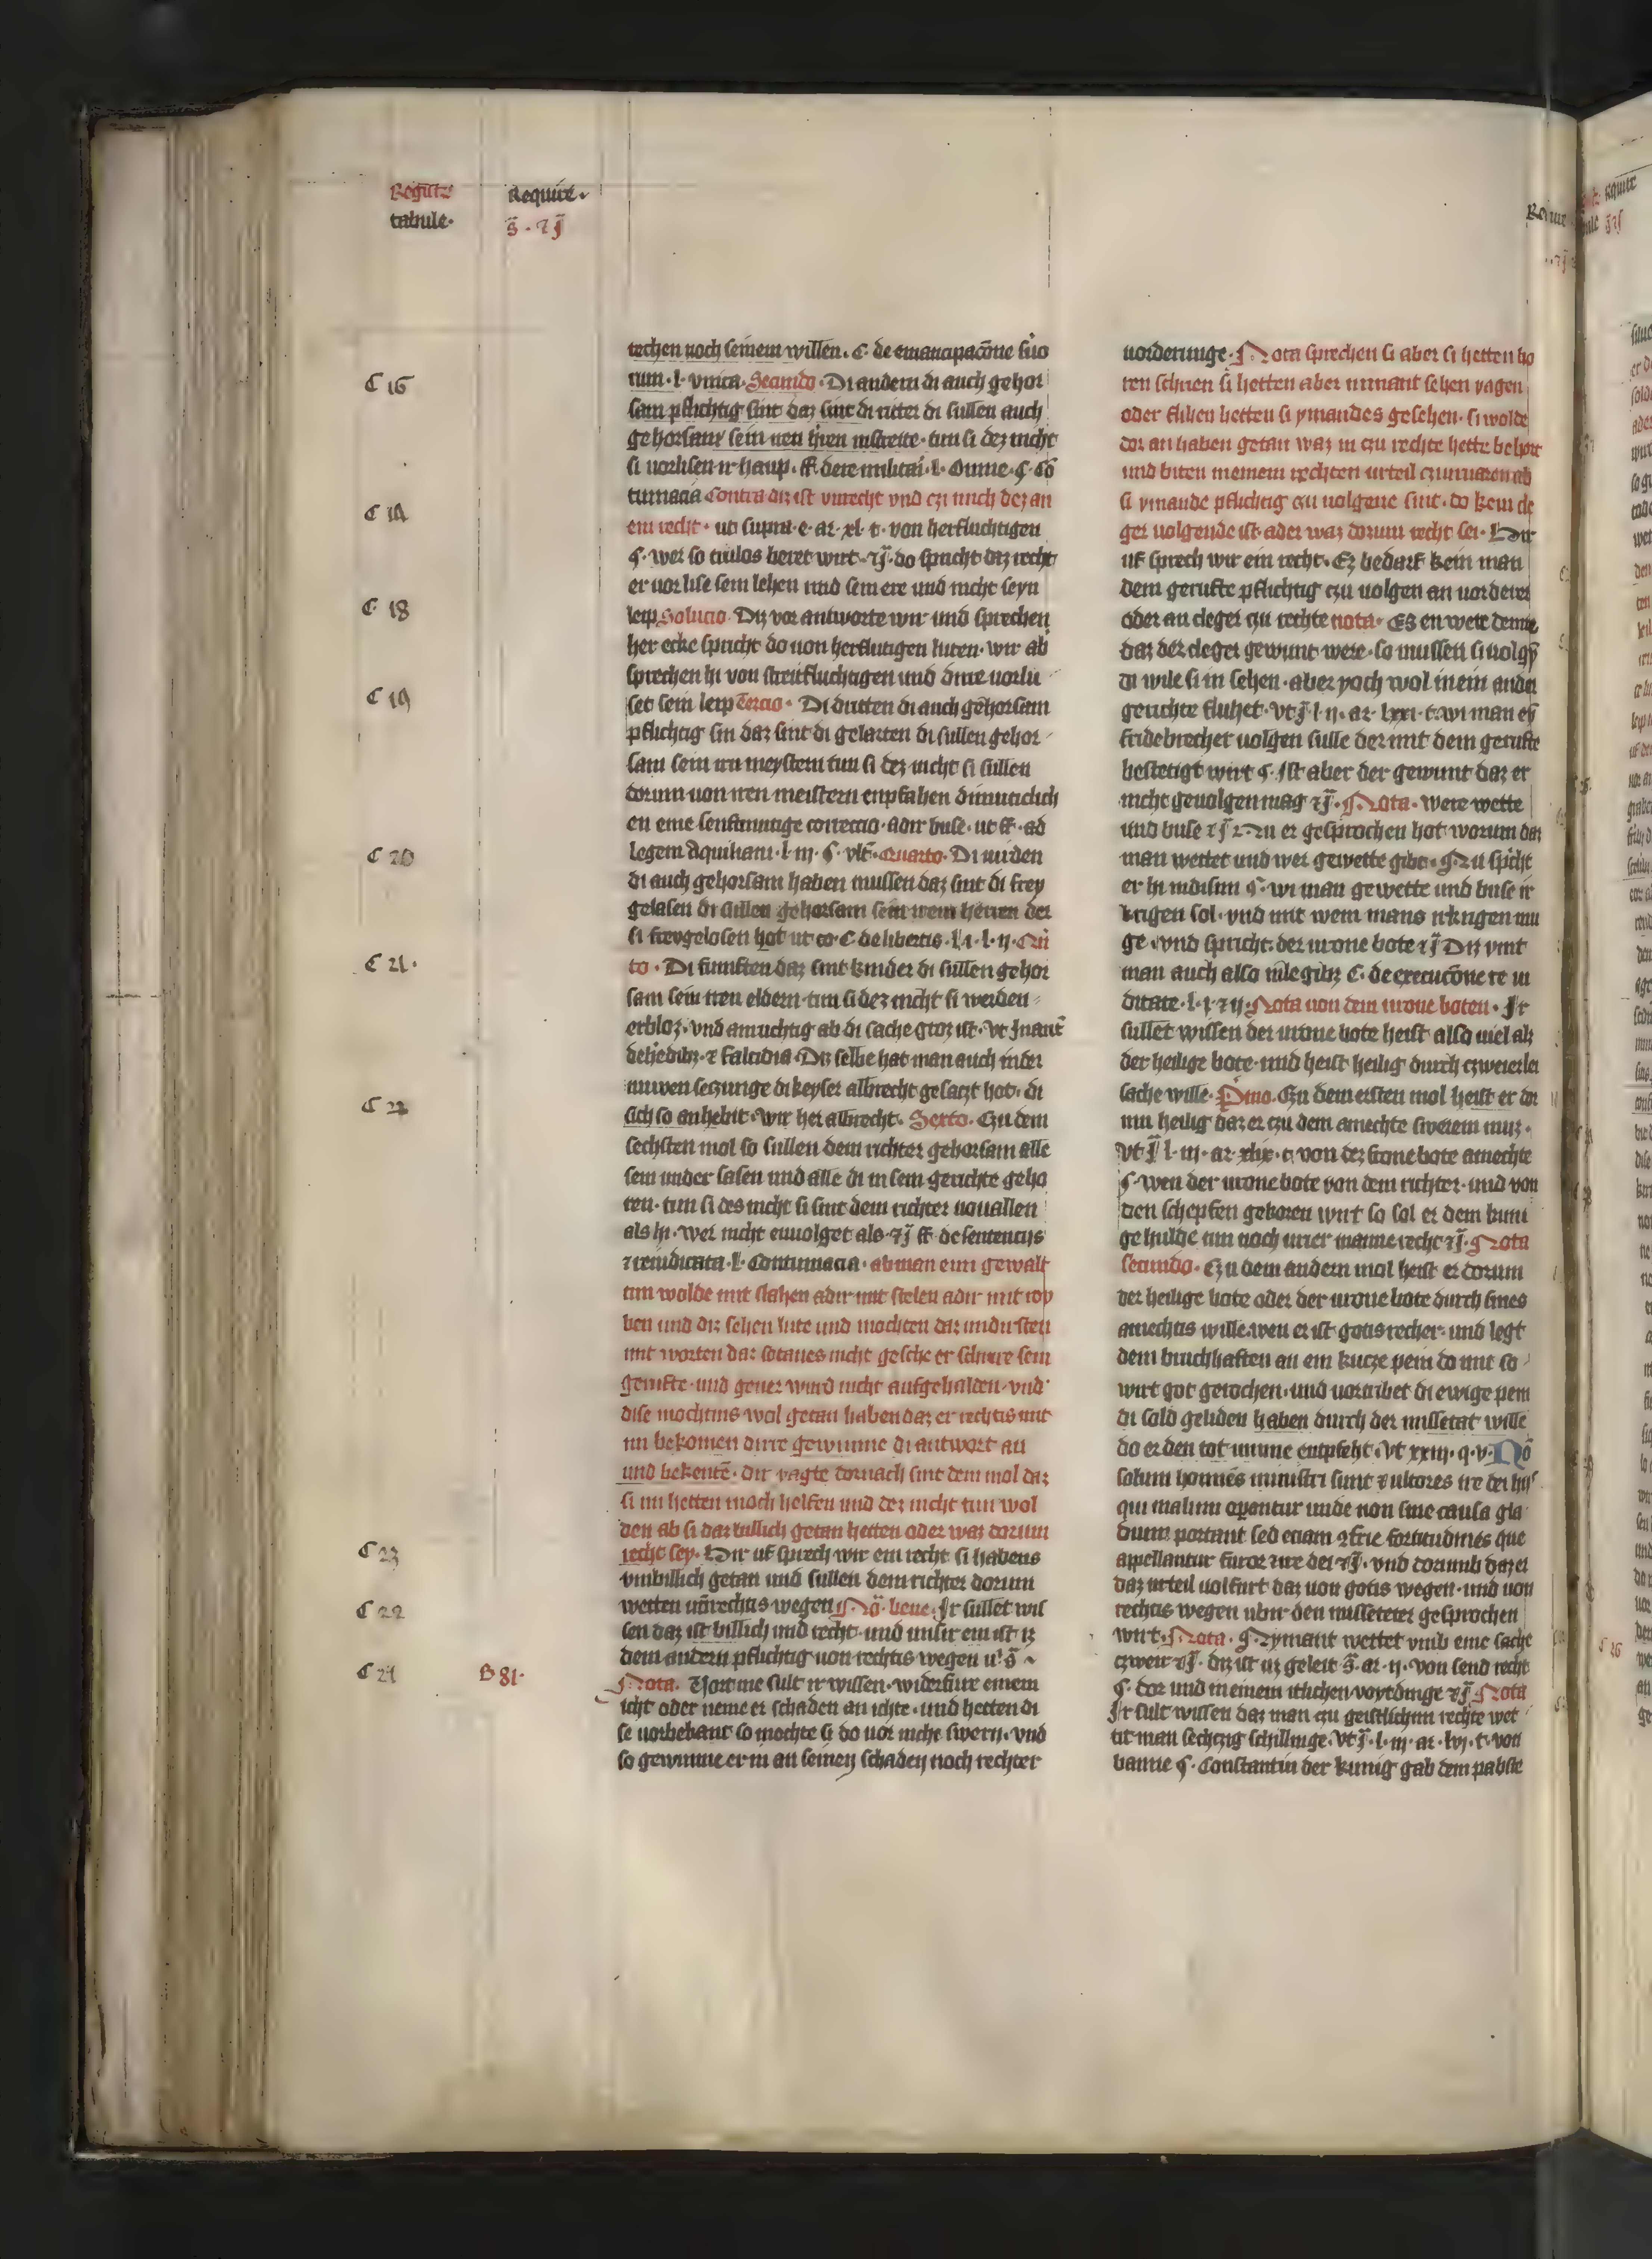 Registrum
tabule·
Require·
C 16
C 17
C 18
C 19
C 20
C 21·
C 22
C 23
B 81·
rechen noch seinem willen. C· de emancipacone libo
rum·l·vnica·Secundo·Di andern di auch gehor
sam pflichtig sint daz sint di ritter di sullen auch
gehorsam sein iren hren instreite·tun si dez nicht
si uorlisen ir haup·ff de re militai·l·Omne·§·Co
tumacia Contra diz ist vnrecht vnd czi mich dez an
ein recht·ut supra·e·ar·xl·t·von herfluchtigen
§·wer so truelos beret wirt·do spricht daz recht
er uorlise sein lehen und sein ere und nicht seyn
leip Solucio·Diz vor antworte wir und sprechen
her ecke spricht do uon herflutigen luten·wir ab
sprechen hi von streitfluchtigen und dirre uorlu
set sein leip Tercio·Di dritten di auch gehorsam
pflichtig sin daz sint di gelarten di sullen gehor
sam sein irn meystern tun si dez nicht si sullen
dorum uon iren meistern enpfahen
en eine senftmutige correccio·adir buse·ut ff·ad
legem Aquiliam·l·iij·§·vlt·Quarto·Di uirden
di auch gehorsam haben mussen daz sint di frey
gelasen di sullen gehorsam sein irem herren der
si freygelosen hot ut co·C de libertis·l·i·l·ij·Qui
to·Di funften daz sint kinder di sullen gehor
sam sein iren eldern·tun si dez nicht si werden
erbloz·vnd amruchtig ab di sache groz ist·vt Jnaut
Falcidia·Diz selbe hat man auch in der
nuwen seczunge di keyser albrecht gesaczt hot·di
sich so anhebit·Wir her albrecht·Sexto·Czu dem
sechsten mol so sullen dem richter gehorsam alle
sein under sasen und alle di in sein gerichte geho
ren·tun si des nicht si sint dem richter uouallen
als hi·wer nicht enuolget als·ff de sentencijs
re iudicata·l·Contumacia·ab man eim gewalt
tun wolde mit slahen adir mit stelen adir mit rov
ben und diz sehen lute und mochten daz undirsten
mit worten daz sotanes nicht gesche er schrire sein
gerufte·und gener wurd nicht aufgehalden·vnd
dise mochtins wol getan haben daz er rechtis mit
im bekomen dirre gewunne di antwort an
und bekente·dir vragte dornach sint dem mol daz
si im hetten moch helfen und dez nicht tun wol
den ab si daz billich getan hetten oder waz dorum
recht sey·Dir uf sprech wir ein recht si habens
vnbillich getan und sullen dem richter dorum
wetten unrechtis wegen No·bene·Jr sullet wis
sen daz ist billich und recht·und unsir ein ist iz
dem andern pflichtig uon rechtis wegen
Nota·Vort me sult ir wissen·widerfure einem
icht oder neme er schaden an ichte·und hetten di
se uorbehant so mochte si do uor nicht swern·vnd
so gewunne er in an seinen schaden noch rechter
uorderunge·Nota sprechen si aber si hetten ho
ren schrien si hetten aber nimant sehen vagen
oder fluhen hetten si ymandes gesehen·si wolde
dor an haben getan waz in czu rechte hette behort
und biten meinem rechten urteil czuuuaren ab
si ymande pflichtig czu uolgene sint·do kein cle
ger uolgende ist ader waz dorum recht sei·Dir
uf sprech wir ein recht·Ez bedarf kein man
dem gerufte pflichtig czu uolgen an uorderer
oder an cleger czu rechte nota·Es en were denne
daz der cleger gewunt were·so mussen si uolgen
di wile si in sehen·aber yoch wol in ein ander
gerichte fluhet·l·ij·ar·lxxi·t·wi man ey
fridebrecher uolgen sulle der mit dem gerufte
bestetigt wirt §·Ist aber der gewunt daz er
nicht geuolgen mag·Nota·were wette
und buse·Nu er gesprochen hot worum daz
man wettet und wer gewette gibt·§·Nu spricht
er hi in disim §·wi man gewette und buse ir
krigen sol·vnd mit wem mans irkrigen mu
ge·vnd spricht·der urone bote Diz vint
man auch also in legibus C·de execucone rei iu
dicate·l·i·ij·Nota uon dem urone boten·Jr
sullet wissen der urone bote heist also uiel als
der heilige bote·und heist heilig durch czweierlei
sache wille·Primo·Czu dem ersten mol heist er dor
um heilig daz er czu dem amechte sweren muz·
l·iij·ar·xlix·t·von dez frone bote amechte
§·Wen der urone bote von dem richter·und von
den schepfen gekoren wirt so sol er dem kuni
ge hulde tun noch urier manne recht·Nota
secundo·Czu dem andern mol heist er dorum
der heilige bote oder der urone bote durch sines
amechtis wille·wen er ist gotis recher·und legt
dem bruchhaften an ein kurcze pein do mit so
wirt got gerochen·und uortribet di ewige pein
di sold geliden haben durch der missetat wille
do er den tot umme entpfeht·Vt xxiij·q·v·No
solum homines ministri sunt ultores ire dei
qui malum operantur unde non sine causa gla
dium portant sed eciam fortitudines que
appellantur furor ire dei·vnd dorumb daz er
daz urteil uolfurt daz uon gotis wegen·und uon
rechtis wegen ubir den misseteter gesprochen
wirt·Nota·§·Nymant wettet vmb eine sache
czweir·diz ist uz geleit·ar·ij·von send recht
§·dor und in einem itlichen voytdinge·Nota
Jr sult wissen daz man czu geistlichim rechte wet
tit man sechczig schillinge·l·iij·ar·lvj·t·von
banne §·Constantin der kunig gab dem pabste